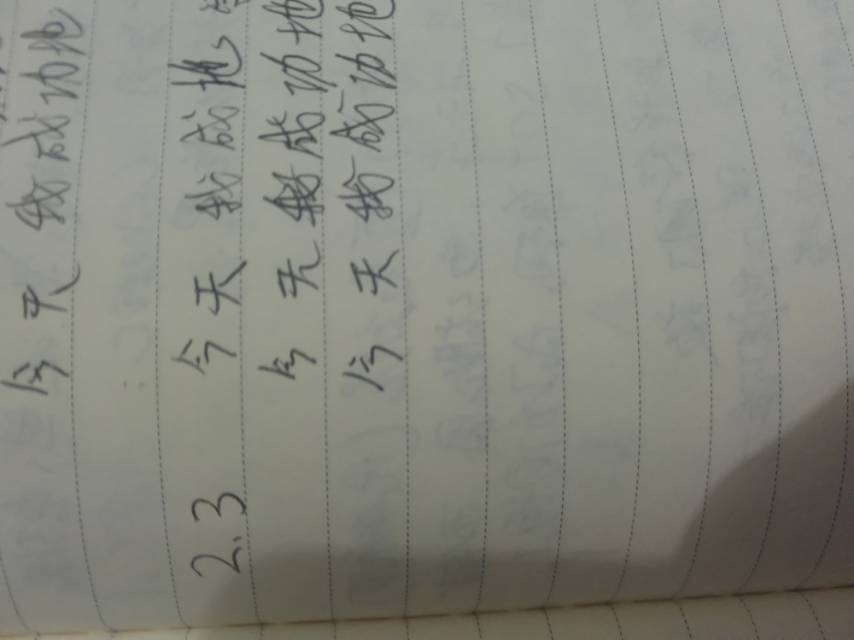 今天我成功地
2.3 今天我成地、
今天我成功地
今天我成功地